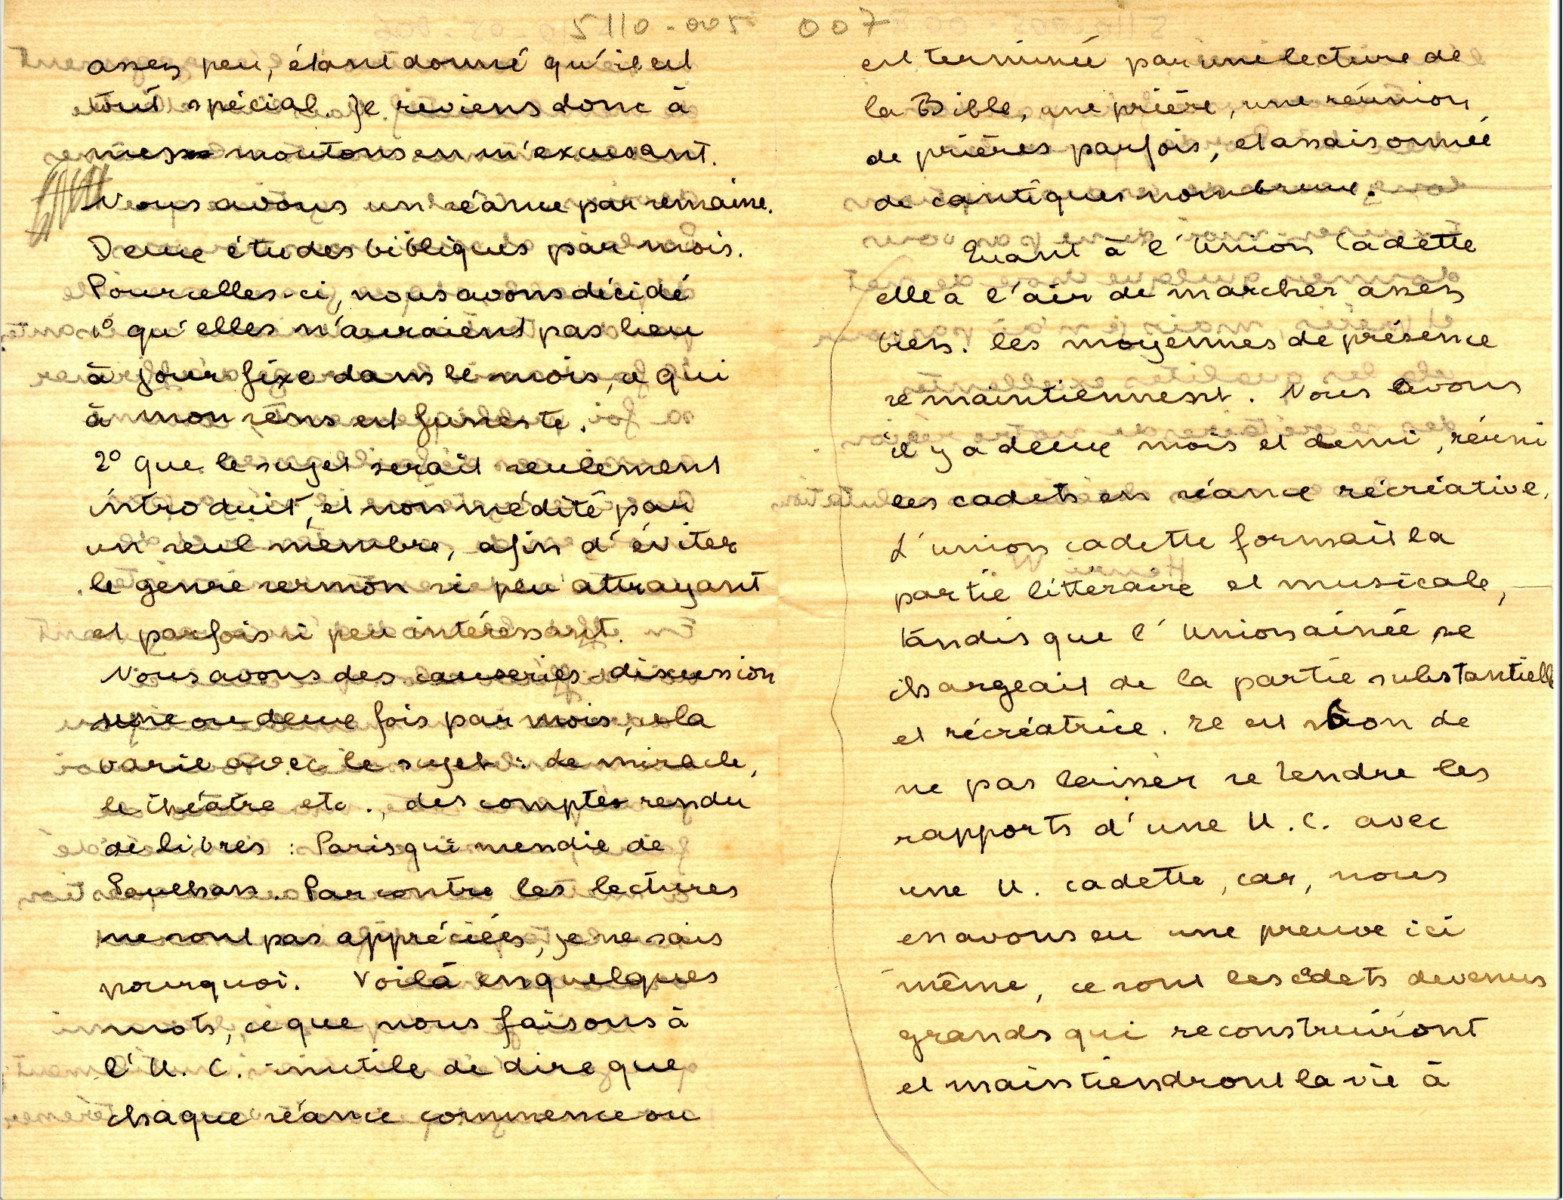 5110-005 007
assez peu, étant donné qu'il est
tout spécial. Je reviens donc à
mes moutons en m'excusant.
Nous avons un séance par semaine.
Deux études bibliques par mois.
Pour celles-ci, nous avons décidé
1° qu'elles n'auraient pas lieu
à jour fixe dans le mois, ce qui
à mon sens est funeste.
2° que le sujet serait seulement
introduit, et non médité par
un seul membre, afin d'éviter
le genre sermon si peu attrayant
et parfois si peu intéressant.
Nous avons des causeries-discussion
une ou deux fois par mois, cela
varie avec le sujet : le miracle,
le théâtre etc., des comptes rendu
de livres : Paris qui mendie de
Paulhan. Par contre les lectures
ne sont pas appréciées, je ne sais
pourquoi. Voilà en quelques
mots, ce que nous faisons à
l'U. C. inutile de dire que
chaque séance commence ou
est terminée par une lecture de
la Bible, une prière, une réunion
de prières parfois, et assaisonnée
de cantiques nombreux.
Quant à l'Union Cadette
elle a l'air de marcher assez
bien. les moyennes de présence
se maintiennent. Nous avons
il y a deux mois et demi, réuni
les cadets en séance récréative.
L'union cadette formait la
partie littéraire et musicale,
tandis que l'Union ainée se
chargeait de la partie substantielle
et récréatrice. Il est bon de
ne pas laisser se tendre les
rapports d'une U. C. avec
une U. cadette, car, nous
en avons eu une preuve ici
même, ce sont les cadets devenus
grands qui reconstruiront
et maintiendront la vie à